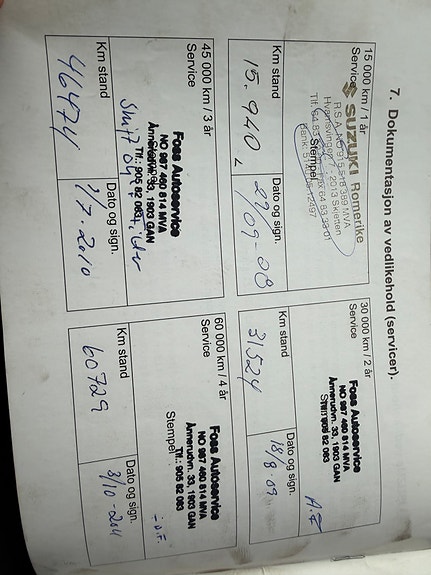 7. Dokumentasjon av vedlikehold (servicer).
15 000 km / 1 år
Service
SUZUKI Romerike
Stempel
Km stand
15.940
Dato og sign.
22/09-08
30 000 km / 2 år
Service
Foss Autoservice
NO 987 460 814 MVA
Ånnerudvn. 33, 1903 GAN
Tlf.: 905 82 083
Km stand
31524
Dato og sign.
18/8.09
45 000 km / 3 år
Service
Foss Autoservice
NO 987 460 814 MVA
Ånnerudvn. 33, 1903 GAN
Tlf.: 905 82 083
Skift olje
Km stand
46474
Dato og sign.
1/7.2010
60 000 km / 4 år
Service
Foss Autoservice
NO 987 460 814 MVA
Ånnerudvn. 33, 1903 GAN
Tlf.: 905 82 083
Stempel
Km stand
60729
Dato og sign.